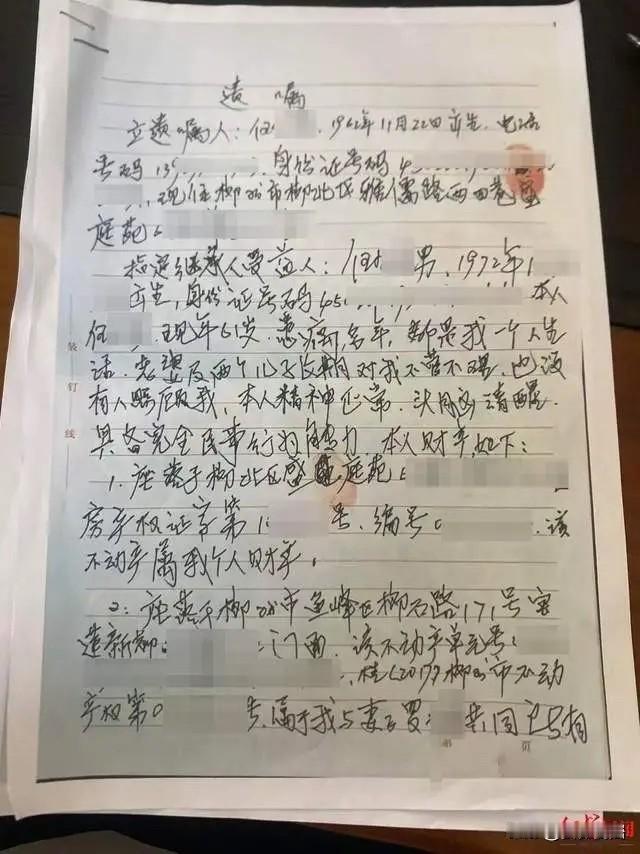 遗嘱
立遗嘱人：任 ，1962年11月22日出生，电话
号码13 ，身份证号码4
，现住柳州市柳北区雅儒路西四巷盛
庭苑
指定继承人受益人：任 男，1972年1
出生，身份证号码45 本人
任 ，现年61岁，患病多年，都是我一个人生
活，妻子及两个儿子长期对我不管不理，也没
有人照顾我，本人精神正常，头脑清醒，
具备完全民事行为能力，本人财产如下：
1、座落于柳北区盛 庭苑
房产权证字第1 号，编号 ，该
不动产属我个人财产。
2、座落于柳州市鱼峰区柳石路171号
新 门面，该不动产单元号
桂(2017)柳州市不动
产权第0 号，属于我与妻子罗 共同
第 页
装
订
线